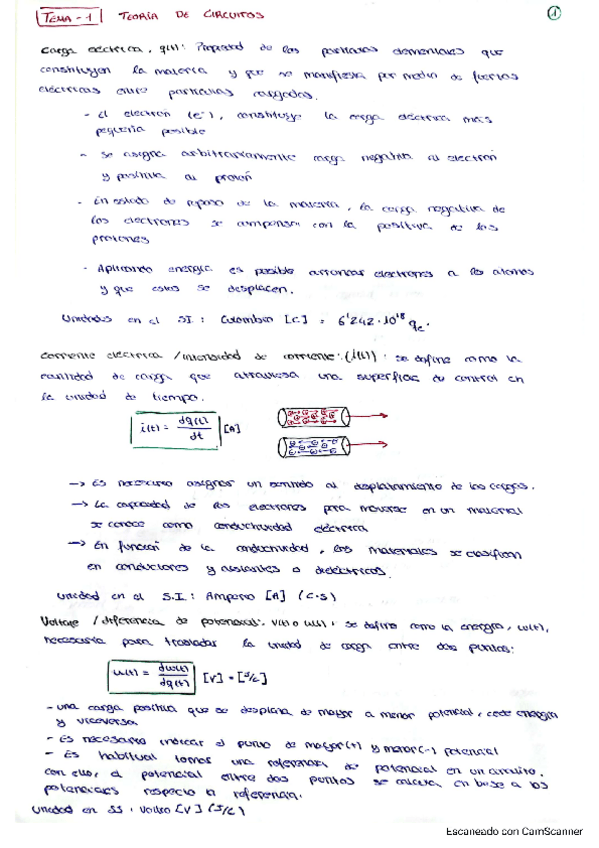 TEMA-1 TEORÍA DE CIRCUITOS 1
Carga eléctrica, q(t): Propiedad de las partículas elementales que
constituyen la materia y que se manifiesta por medio de fuerzas
eléctricas entre partículas cargadas.
- El electrón (e-), constituye la carga eléctrica más
pequeña posible
- Se asigna arbitrariamente carga negativa al electrón
y positiva al protón
- En estado de reposo de la materia, la carga negativa de
los electrones se compensa con la positiva de los
protones
- Aplicando energía es posible arrancar electrones a los átomos
y que estos se desplacen.
Unidades en el S.I: Culombio [C] = 6'242·10^18 qe-
Corriente eléctrica / intensidad de corriente: (i(t)): se define como la
cantidad de carga que atraviesa una superficie de control en
la unidad de tiempo.
i(t) = dq(t)/dt [A]
-> Es necesario asignar un sentido al desplazamiento de las cargas.
-> La capacidad de los electrones para moverse en un material
se conoce como conductividad eléctrica
-> En función de la conductividad, los materiales se clasifican
en conductores y aislantes o dieléctricos.
Unidad en el S.I: Amperio [A] (C·S)
Voltaje / diferencia de potencial: v(t) o u(t): se define como la energía, w(t),
necesaria para trasladar la unidad de carga entre dos puntos:
u(t) = dw(t)/dq(t) [V] = [J/C]
- una carga positiva que se desplaza de mayor a menor potencial, cede energía
y viceversa
- Es necesario indicar el punto de mayor(+) y menor(-) potencial
- Es habitual tomar una referencia de potencial en un circuito.
con ello, el potencial entre dos puntos se calcula en base a los
potenciales respecto la referencia.
Unidad en SI: Voltio [V] (J/C)
Escaneado con CamScanner